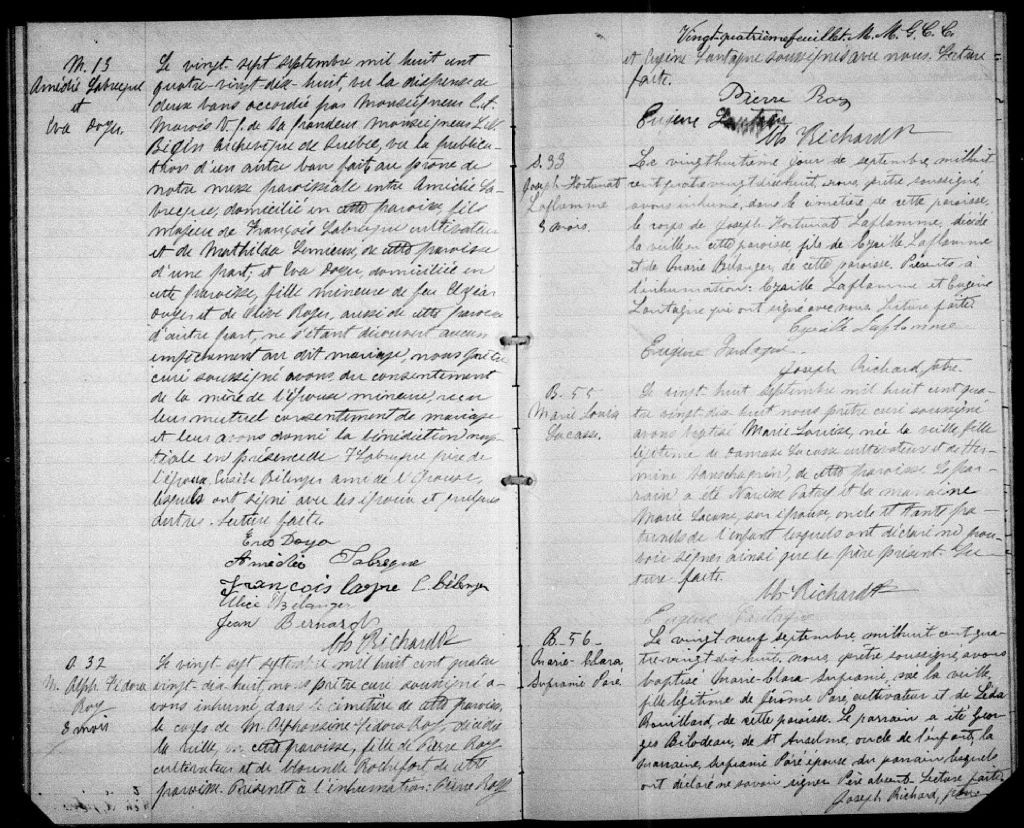 M. 13
Amédée Labrecque
et
Eva Doyer.
Le vingt sept septembre mil huit cent
quatre-vingt-dix-huit, vu la dispense de
deux bans accordée par Monseigneur C. A.
Marois V. G. de Sa Grandeur Monseigneur L. N.
Bégin Archevêque de Québec, vu la publica-
tion d'un autre ban fait au prône de
notre messe paroissiale entre Amédée La-
brecque, domicilié en cette paroisse, fils
majeur de François Labrecque cultivateur
et de Mathilda Lemieux, de cette paroisse
d'une part; et Eva Doyer, domiciliée en
cette paroisse, fille mineure de feu Elzéar
Doyer et de Olive Roger, aussi de cette paroisse
d'autre part, ne s'étant découvert aucun
empêchement au dit mariage, nous prêtre
curé soussigné avons, du consentement
de la mère de l'épouse mineure, reçu
leur mutuel consentement de mariage
et leur avons donné la bénédiction nup-
tiale en présence de F Labrecque père de
l'époux, Bélanger ami de l'épouse,
lesquels ont signé avec les époux et quelques
autres. Lecture faite.
Eva Doyer
Amédée Labreque
François C. Bélanger
Alice Bélanger
Jean Bernard
Richard
S. 32
M. Alph. Fédora
Roy
8 mois
Le vingt sept septembre mil huit cent quatre
vingt-dix-huit, nous prêtre curé soussigné a-
vons inhumé dans le cimetière de cette paroisse,
le corps de M. Alphonsine Fédora Roy, décédée
la veille, en cette paroisse, fille de Pierre Roy
cultivateur et de Rochefort de cette
paroisse. Présents à l'inhumation: Pierre Roy
Vingt-quatrième feuillet. M. M. G. C. C.
et Eugène Lantagne soussignés avec nous. Lecture
faite.
Pierre Roy
Eugène
Richard
S. 33
Joseph-Fortunat
Laflamme
8 mois.
Le vingt huitième jour de septembre, mil huit
cent quatre vingt dix huit, nous, prêtre soussigné,
avons inhumé, dans le cimetière de cette paroisse,
le corps de Joseph Fortunat Laflamme, décédé
la veille en cette paroisse, fils de Cyrille Laflamme
et de Marie Bélanger, de cette paroisse. Présents à
l'inhumation: Cyrille Laflamme et Eugène
Lantagne qui ont signé avec nous. Lecture faite
Cyrille Laflamme
Eugène Lantagne.
Joseph Richard, ptre.
B. 55
Marie Louise
Lacasse.
Le vingt huit septembre mil huit cent qua-
tre vingt-dix huit nous prêtre curé soussigné
avons baptisé Marie Louise, née la veille, fille
légitime de Damase Lacasse cultivateur et de Her-
mine Lanschagrin, de cette paroisse. Le par-
rain a été Narcisse et la marraine
Marie Lacasse, son épouse, oncle et tante pa-
ternels de l'enfant lesquels ont déclaré ne pou-
voir signer ainsi que le père présent. Lec-
ture faite.
Richard
Eugène Lantagne
B. 56
Marie-Clara
Euphémie Paré.
Le vingt neuf septembre, mil huit cent qua-
tre-vingt dix huit, nous, prêtre soussigné, avons
baptisé Marie-Clara Euphémie, née la veille,
fille légitime de Jérôme Paré, cultivateur et de Léda
Rouillard, de cette paroisse. Le parrain a été Geor-
ges Bilodeau, de St Anselme, oncle de l'enfant, la
marraine, Euphémie Paré épouse du parrain lesquels
ont déclaré ne savoir signer. Père absent. Lecture faite.
Joseph Richard, ptre